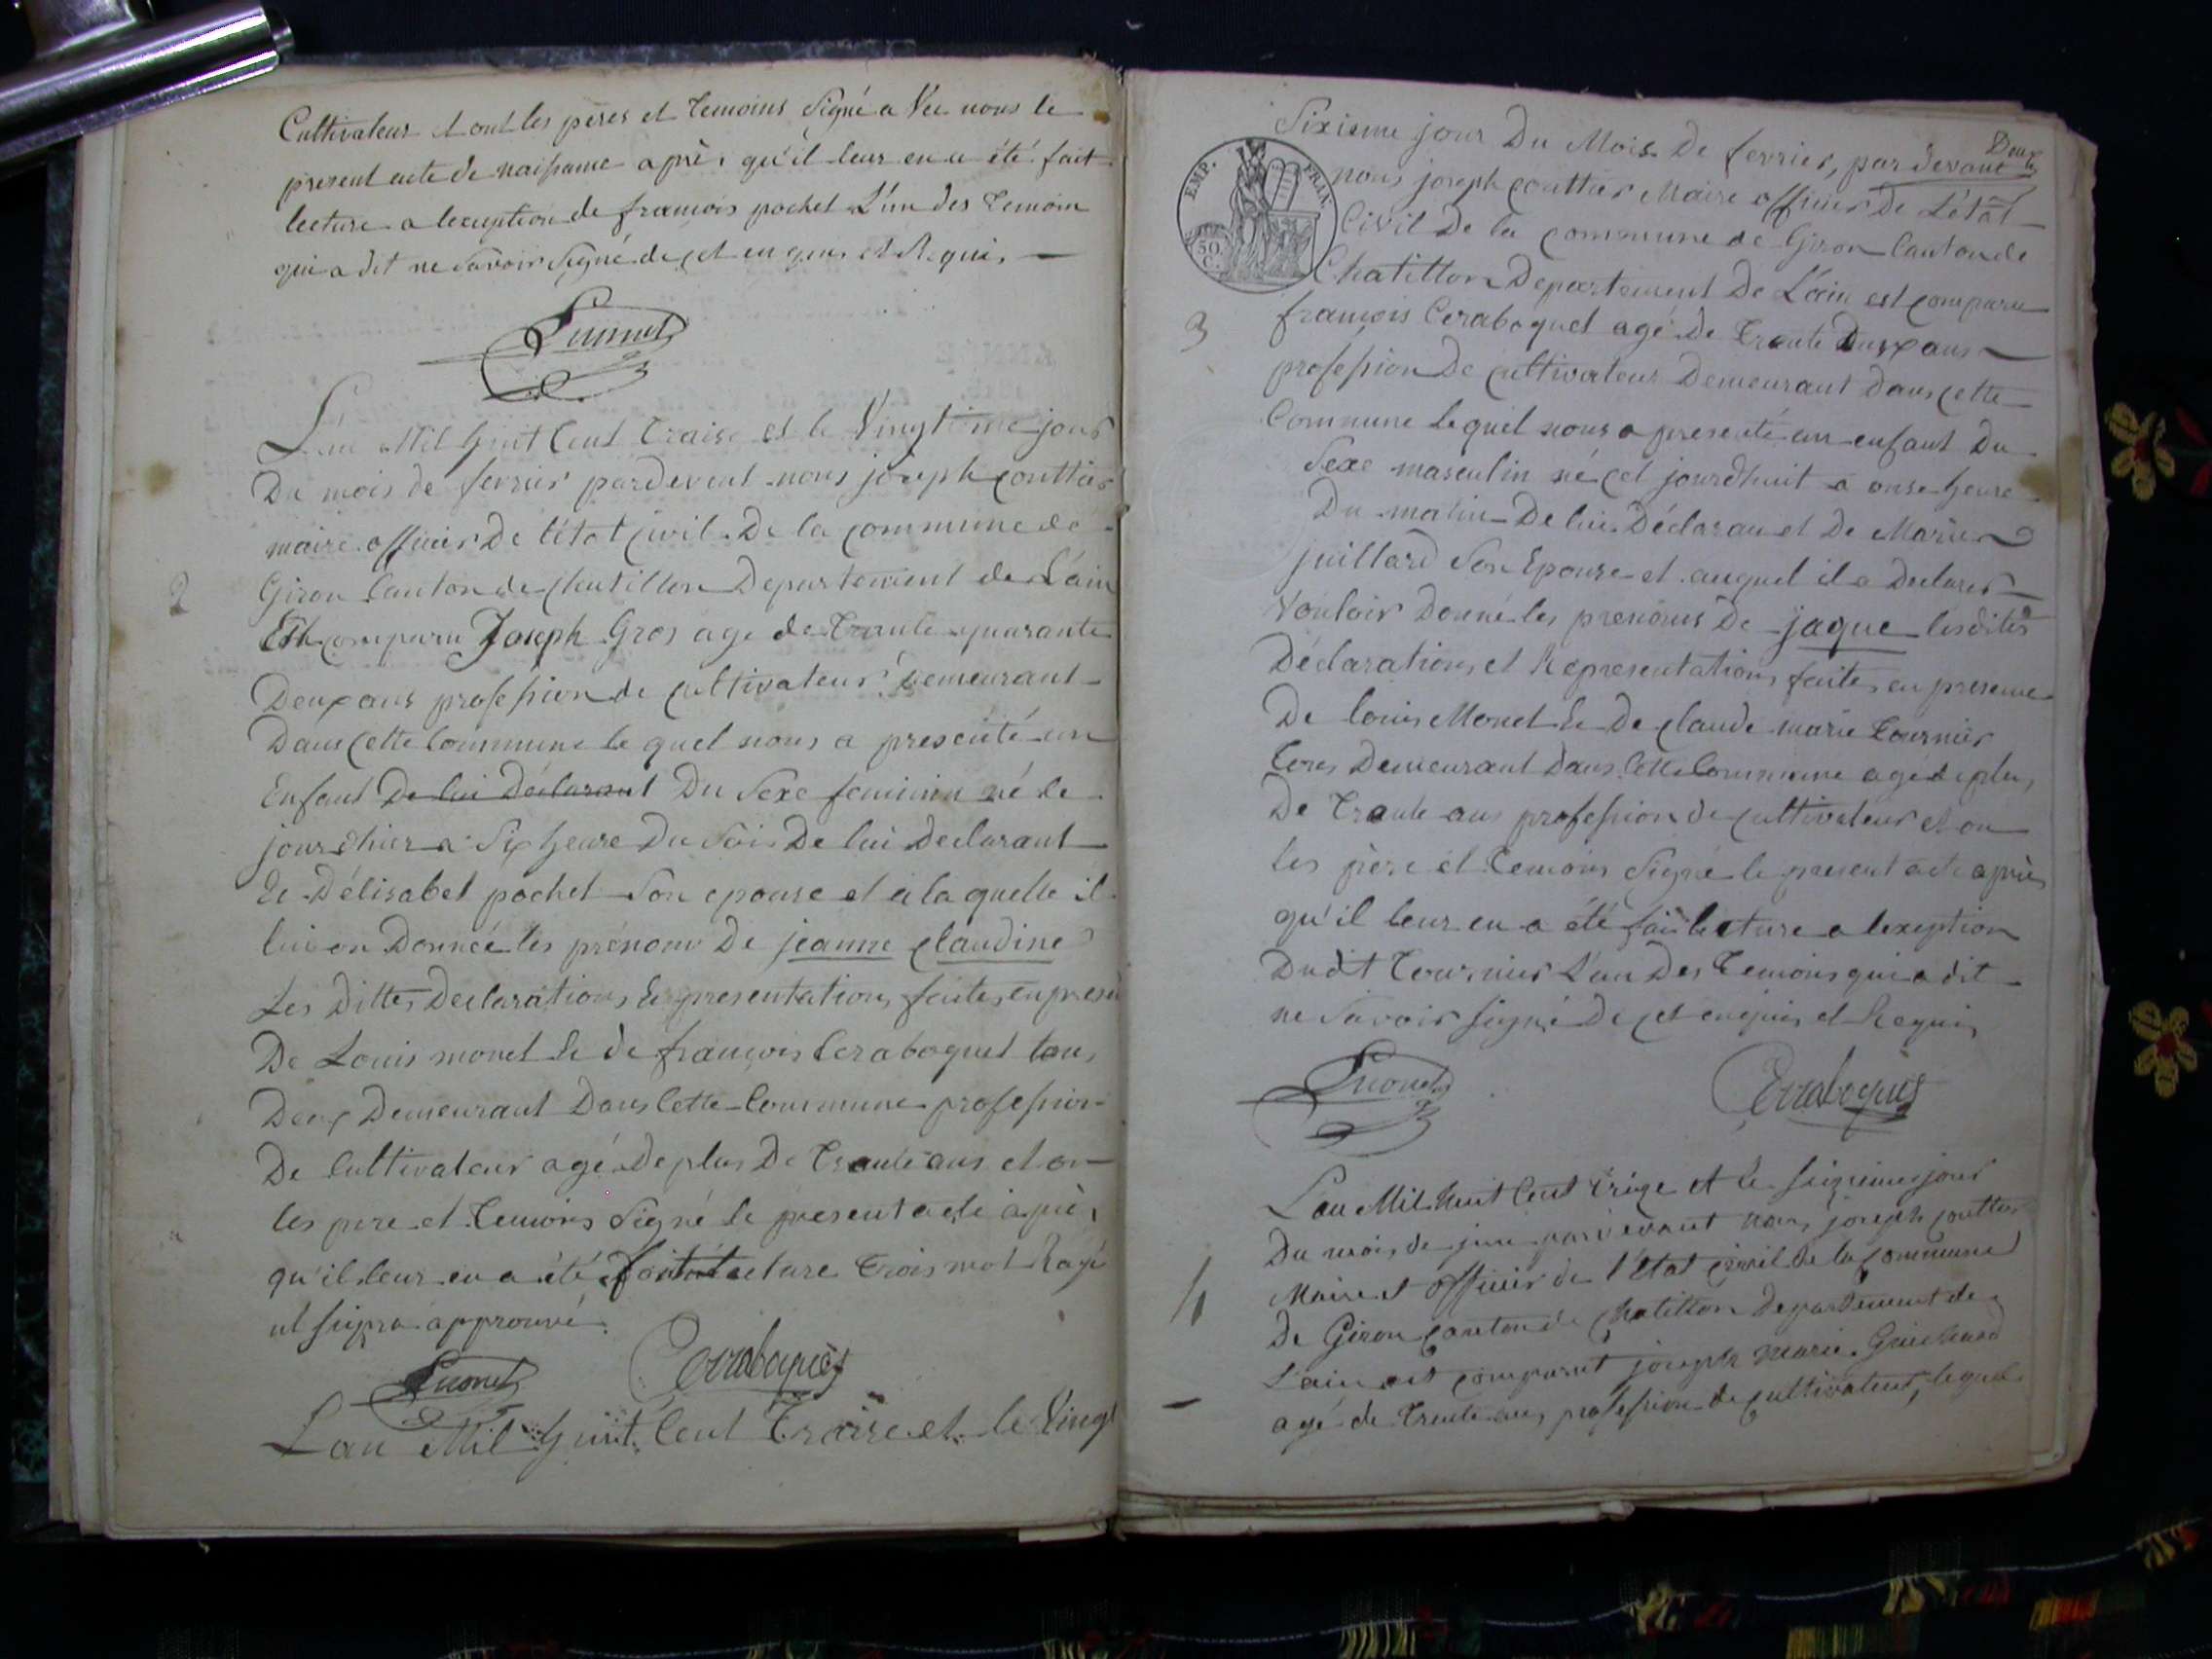 Cultivateur et ont les peres et temoins Signé a Vec nous le
present acte de naissance après qu'il leur en a été fait
lecture a lexceptiön de francois pochet L'un des temoin
qui a dit ne Savoir Signé de cet en quis et Requis
Lmonet
2
L'an Mil huit Cent traise et le Vingtieme jour
Du mois de fevrier pardevent nous joseph couttier
maire officier De l'état civil De la commune de
Giron Canton de chatillon Departement de L'ain
Est comparu Joseph Gros age de trante quarante
Deux ans profession de cultivateur Demeurant
Dans cette Commune le quel nous a presenté un
Enfant De lui Déclarant Du Sexe feminin né le
jour d'hier a Six heure Du Soir De lui Declarant
Et Délisabet pochet Son epouse et à la quelle il
lui on Donnée les prénom De jeanne claudine
Les Dittes Declarations Et presentations faites en prese
De Louis monet Et de francois Ceraboquet tous
Deux Demeurant Dans Cette Commune profession
De Cultivateur agé De plus De trante ans et on
les pere et temoins Signé le present acte après
qu'il leur en a été fait lecture trois mot Rayé
ut supra approuvé
Lmonet Cerraboquet
L'an Mil huit Cent Traise et le Vingt
Deux
Sixieme jour Du Mois De fevrier, par devant
EMP. FRAN.
50 C.
nous joseph couttier Maire officier De L'état
Civil De la commune de Giron Canton de
Chatillon Departement De L'ain est comparu
3
francois Ceraboquet agé De trante Deux ans
profession De cultivateur Demeurant dans cette
Commune lequel nous a presenté un enfant Du
Sexe masculin né cet jourdhuit a onse heure
Du matin De lui Déclarant et De Marie
juillard Son Epouse et auquel il a Declarer
Vouloir Donné les prenoms De jaque lesdites
Déclarations et Representations faites en presence
De louis Monet Et De claude marie Tournier
tous Demeurant Dans Cette Commune agé de plus
De trante ans profession de cultivateur et on
les père et temoins Signé le present acte après
qu'il leur en a été fait lecture a lexeption
Dudit Tournier L'un Des temoins qui a dit
ne Savoir signé De cet enquis et Requis
Lmonet Cerraboquet
L'an Mil huit Cent treize et le seizieme jour
Du mois de juin pardevant nous joseph couttier
4
Maire et officier de l'état civil de la commune
De Giron canton de chatillon departement de
L'ain est comparut joseph marie Guichard
agé de trente ans profession de cultivateur, lequel